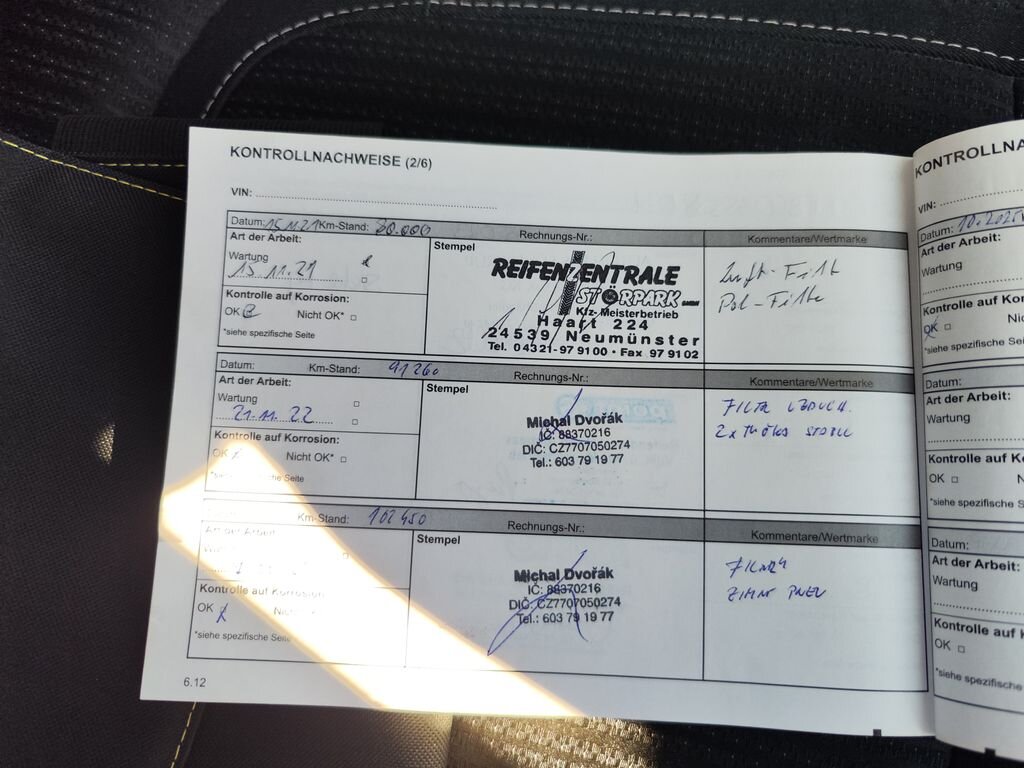 KONTROLLNACHWEISE (2/6)
VIN:
Datum: 15.11.21 Km-Stand: 80.000 Rechnungs-Nr.: Kommentare/Wertmarke
Art der Arbeit:
Wartung
15.11.21
Kontrolle auf Korrosion:
OK Nicht OK*
*siehe spezifische Seite
Stempel
REIFENZENTRALE
STÖRPARK GMBH
Kfz-Meisterbetrieb
Haart 224
24539 Neumünster
Tel. 04321-979100 · Fax 979102
Luft-Filt
Pol-Filte
Datum: Km-Stand: 91260 Rechnungs-Nr.: Kommentare/Wertmarke
Art der Arbeit:
Wartung
21.11.22
Kontrolle auf Korrosion:
OK Nicht OK*
Seite
Stempel
Michal Dvořák
IČ: 88370216
DIČ: CZ7707050274
Tel.: 603 79 19 77
FILTR VZDUCH.
2x
Km-Stand: 102450 Rechnungs-Nr.: Kommentare/Wertmarke
Art der Arbeit
Kontrolle auf Korrosion
OK
*siehe spezifische Seite
Stempel
Michal Dvořák
IČ: 88370216
DIČ: CZ7707050274
Tel.: 603 79 19 77
FILTRY
ZIMNÍ PNEU
6.12
KONTROLLNA
VIN:
Datum:
Art der Arbeit:
Wartung
Kontrolle auf Korro
OK Nic
*siehe spezifische Sei
Datum:
Art der Arbeit:
Wartung
Kontrolle auf Ko
OK N
*siehe spezifische
Datum:
Art der Arbeit:
Wartung
Kontrolle auf K
OK
*siehe spezifische